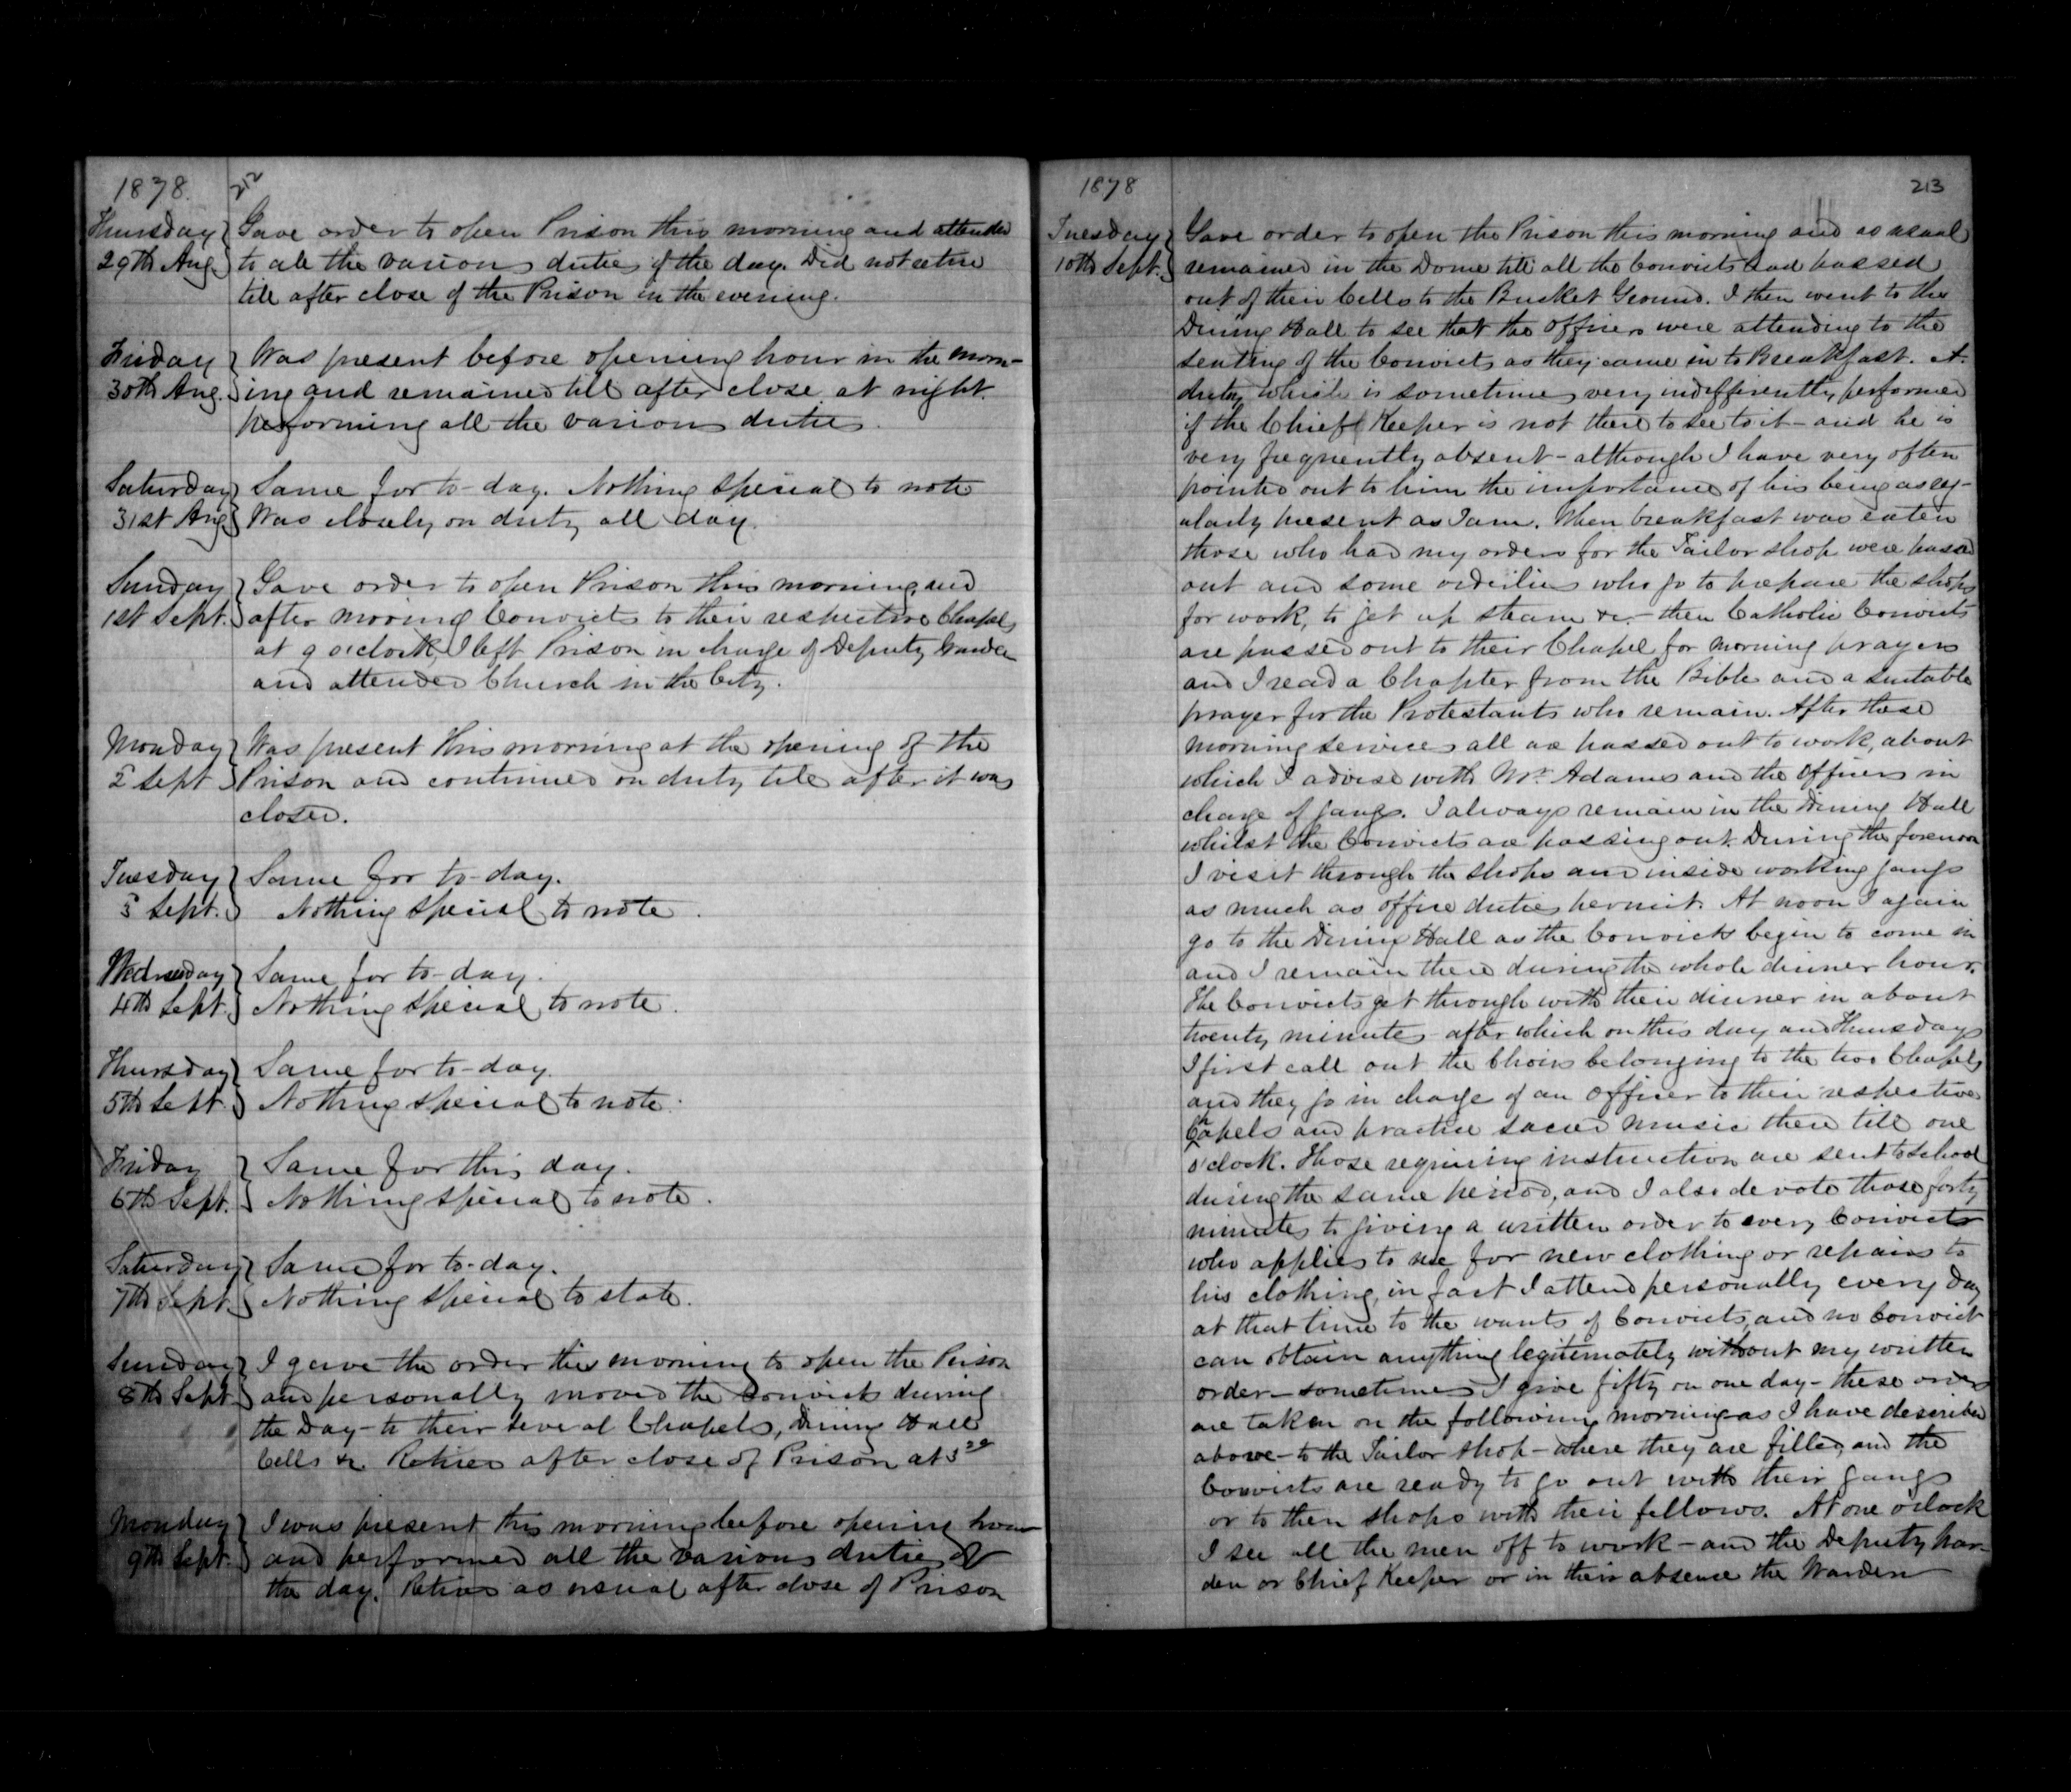 1878. 212
Thursday Gave order to open Prison this morning and attended
29th Aug. to all the various duties of the day. Did not retire
till after close of the Prison in the evening.
Friday Was present before opening hour in the morn-
30th Aug. ing and remained till after close at night.
performing all the various duties.
Saturday Same for to-day. Nothing special to note
31st Aug Was closely on duty all day.
Sunday Gave order to open Prison this morning, and
1st Sept. after moving Convicts to their respective Chapels
at 9 o'clock, I left Prison in charge of Deputy Warden
and attended Church in the City.
Monday Was present this morning at the opening of the
2 Sept Prison and continued on duty till after it was
closed.
Tuesday Same for to-day.
3 Sept. Nothing special to note.
Wednesday Same for to-day.
4th Sept. Nothing special to note.
Thursday Same for to-day.
5th Sept. Nothing special to note.
Friday Same for this day.
6th Sept. Nothing special to note.
Saturday Same for to-day.
7th Sept. Nothing special to state.
Sunday I gave the order this morning to open the Prison
8th Sept and personally moved the Convicts during
the Day - to their several Chapels, Dining Hall
Cells &c Retired after close of Prison at
Monday I was present this morning before opening hour
9th Sept. and performed all the various duties of
the day. Retired as usual after close of Prison
1878 213
Tuesday Gave order to open the Prison this morning and as usual
10th Sept. remained in the Dome till all the Convicts had passed
out of their Cells to the Bucket Ground. I then went to the
Dining Hall to see that the officers were attending to the
seating of the Convicts as they came in to Breakfast. A
duty which is sometimes very indifferently performed
if the Chief Keeper is not there to see to it - and he is
very frequently absent - although I have very often
pointed out to him the importance of his being as reg-
ularly present as I am. When breakfast was eaten
those who had my orders for the Tailor shop were passed
out and some orderlies who go to prepare the shops
for work, to get up steam &c. - then Catholic Convicts
are passed out to their Chapel for morning prayers
and I read a Chapter from the Bible and a suitable
prayer for the Protestants who remain. After these
morning services all are passed out to work, about
which I advise with Mr. Adams and the Officers in
charge of gangs. I always remain in the Dining Hall
whilst the Convicts are passing out. During the forenoon
I visit through the shops and inside working gangs
as much as office duties permit. At noon I again
go to the Dining Hall as the Convicts begin to come in
and I remain there during the whole dinner hour.
The Convicts get through with their dinner in about
twenty minutes - after which on this day and Thursdays
I first call out the Choirs belonging to the two Chapels
and they go in charge of an officer to their respective
Chapels and practice sacred music there till one
o'clock. Those requiring instruction are sent to school
during the same period, and I also devote those forty
minutes to giving a written order to every Convict
who applies to me for new clothing or repairs to
his clothing, in fact I attend personally every day
at that time to the wants of Convicts, and no Convict
can obtain anything legitimately without my written
order - sometimes I give fifty on one day - these orders
are taken on the following morning - as I have described
above - to the Tailor shop - where they are filled, and the
Convicts are ready to go out with their gangs
or to their shops with their fellows. At one o'clock
I see all the men off to work - and the Deputy War-
den or Chief Keeper or in their absence the Warden